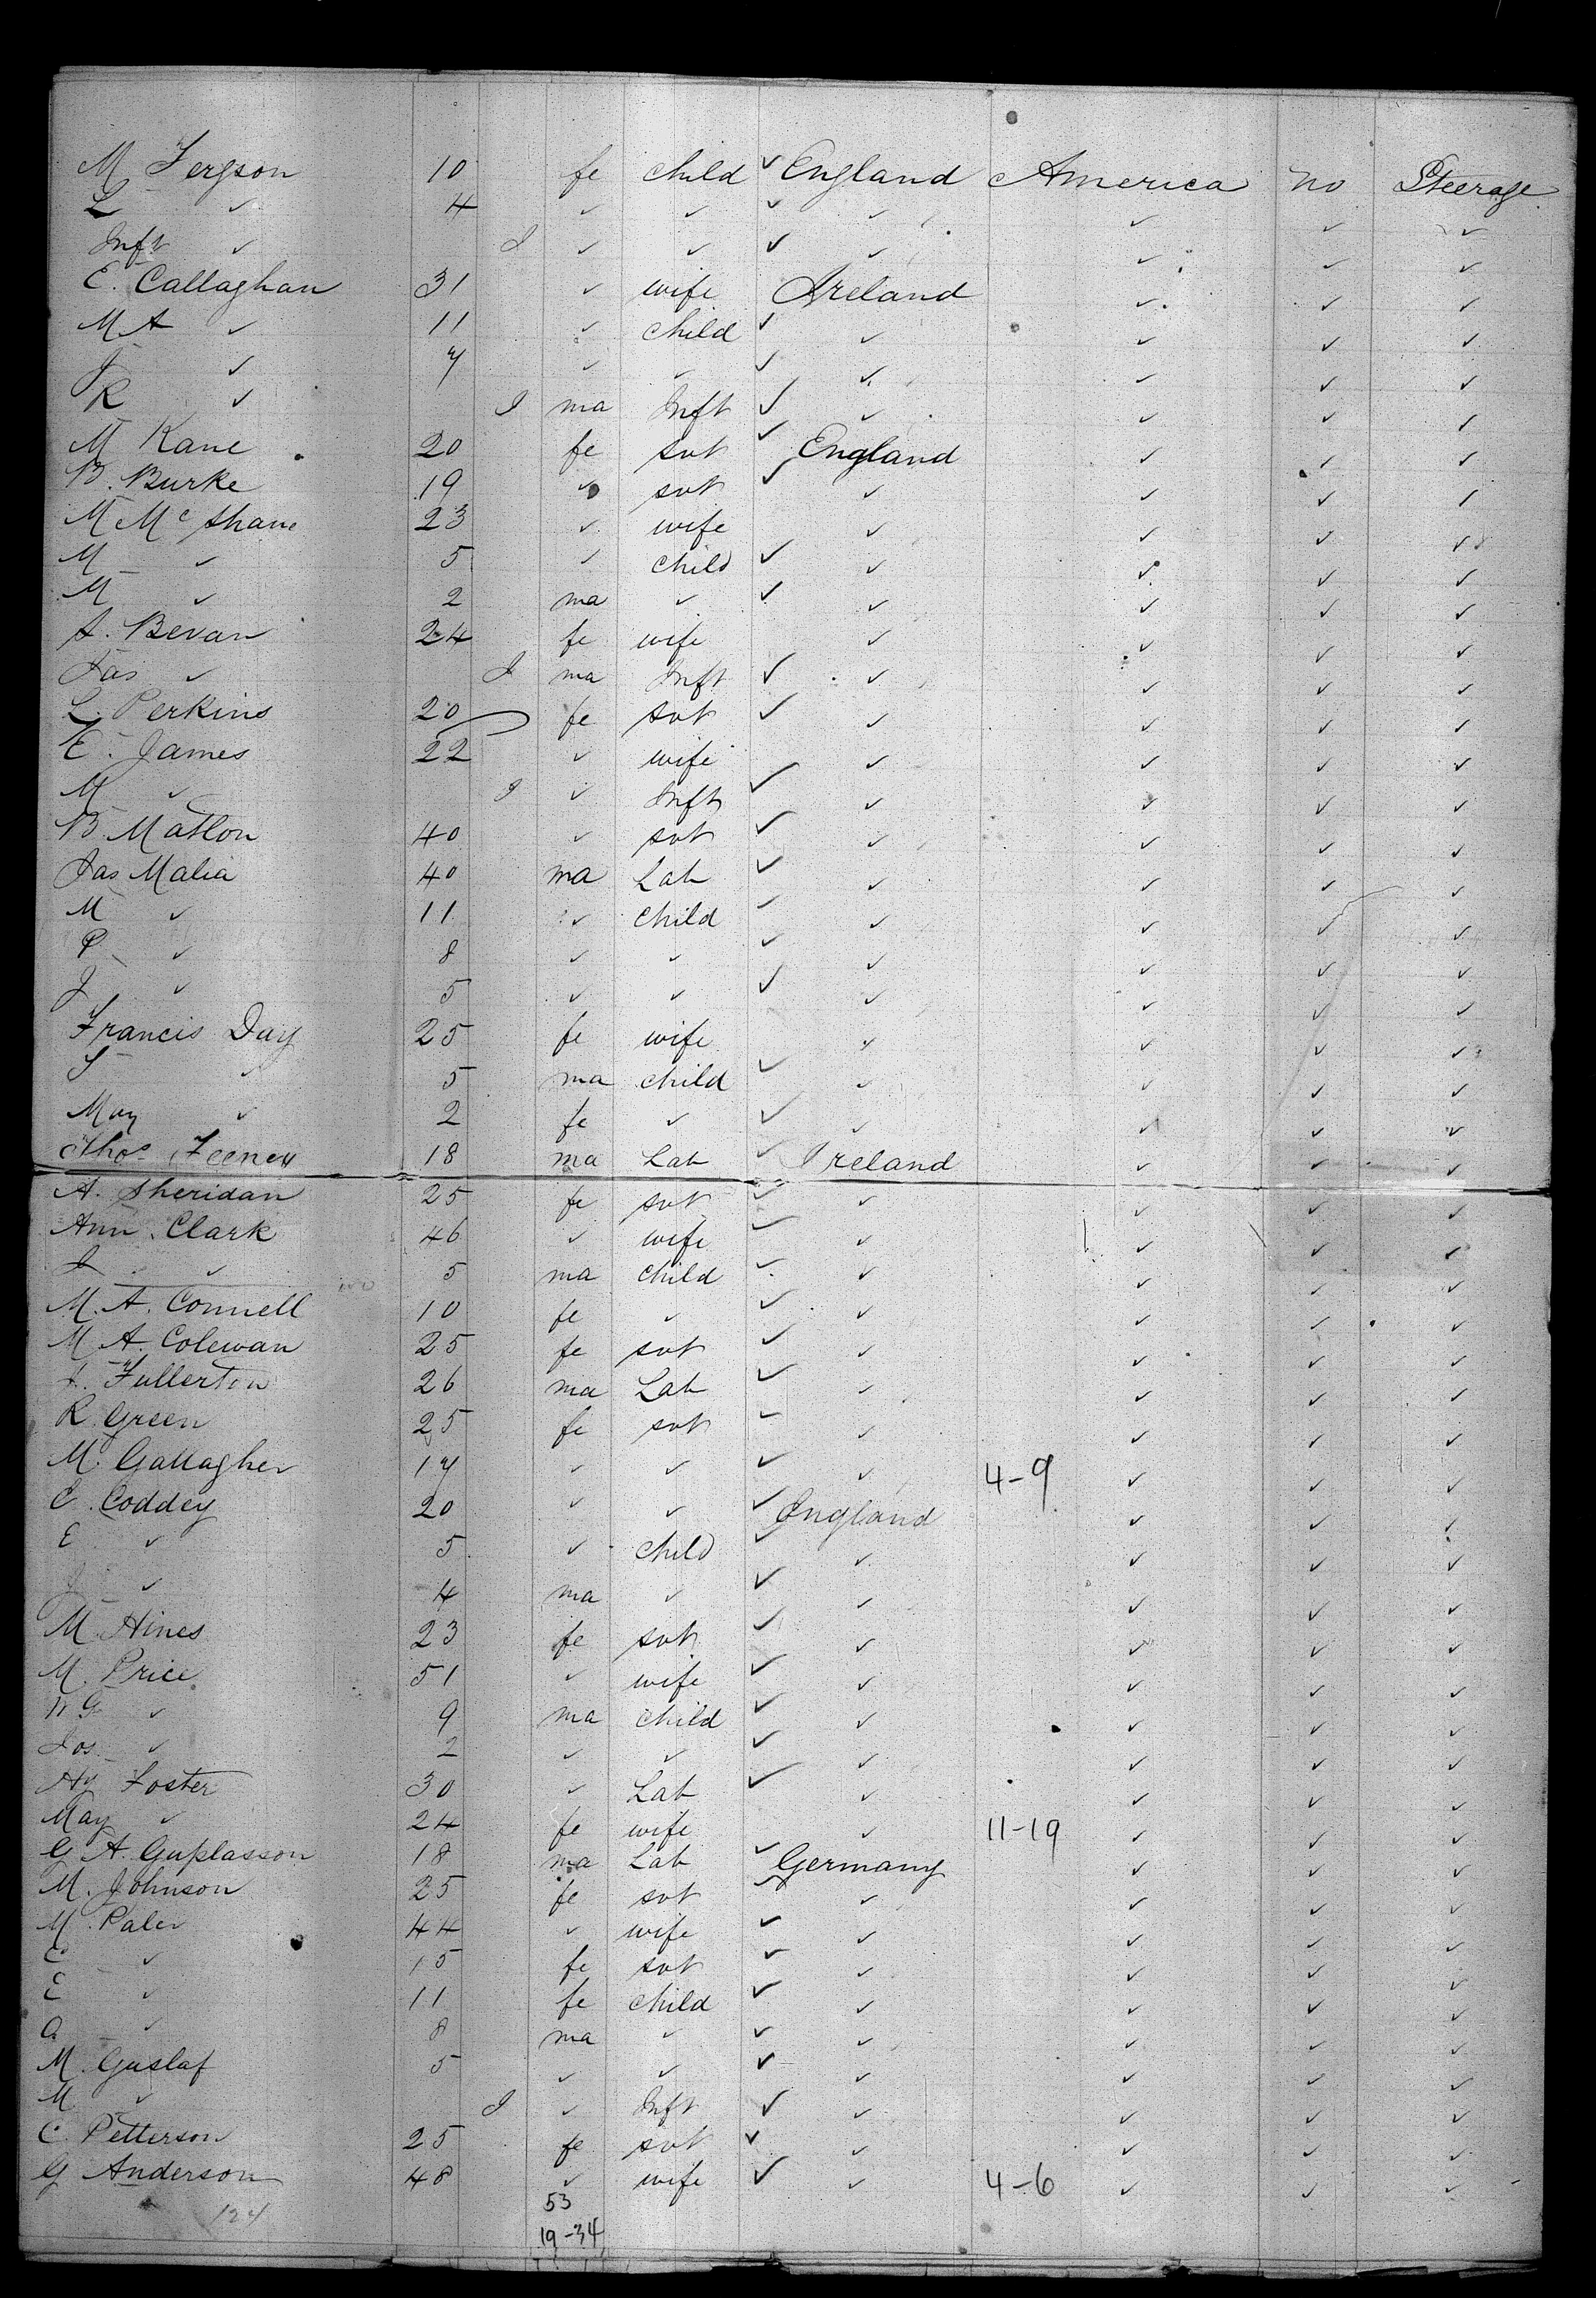 M Fergson 10 fe child ✓ England America no Steerage
L ✓ 4 ✓ ✓ ✓ ✓ ✓ ✓ ✓
Inft ✓ I ✓ ✓ ✓ ✓ ✓ ✓ ✓
E. Callaghan 31 ✓ wife Ireland ✓ ✓ ✓
M A ✓ 11 ✓ child ✓ ✓ ✓ ✓ ✓
J ✓ 7 ✓ ✓ ✓ ✓ ✓ ✓ ✓
R ✓ I ma Inft ✓ ✓ ✓ ✓ ✓
M Kane 20 fe svt ✓ England ✓ ✓ ✓
B. Burke 19 ✓ svt ✓ ✓ ✓ ✓ ✓
M Mc Shane 23 ✓ wife ✓ ✓ ✓ ✓
M ✓ 5 ✓ child ✓ ✓ ✓ ✓ ✓
M ✓ 2 ma ✓ ✓ ✓ ✓ ✓ ✓
A. Bevan 24 fe wife ✓ ✓ ✓ ✓
Jas ✓ I ma Inft ✓ ✓ ✓ ✓ ✓
L. Perkins 20 fe svt ✓ ✓ ✓ ✓ ✓
E. James 22 ✓ wife ✓ ✓ ✓ ✓
M ✓ I ✓ Inft ✓ ✓ ✓ ✓ ✓
B. Matlon 40 ✓ svt ✓ ✓ ✓ ✓ ✓
Jas Malia 40 ma Lab ✓ ✓ ✓ ✓ ✓
M ✓ 11 ✓ child ✓ ✓ ✓ ✓ ✓
P ✓ 8 ✓ ✓ ✓ ✓ ✓ ✓ ✓
J ✓ 5 ✓ ✓ ✓ ✓ ✓ ✓ ✓
Francis Day 25 fe wife ✓ ✓ ✓ ✓
S ✓ 5 ma child ✓ ✓ ✓ ✓ ✓
May ✓ 2 fe ✓ ✓ ✓ ✓ ✓ ✓
Thos Feeney 18 ma Lab ✓ Ireland ✓ ✓ ✓
A. Sheridan 25 fe svt ✓ ✓ ✓ ✓ ✓
Ann Clark 46 ✓ wife ✓ ✓ ✓ ✓ ✓
J ✓ 5 ma child ✓ ✓ ✓ ✓
M. A. Connell 10 fe ✓ ✓ ✓ ✓ ✓ ✓
M A. Colewan 25 fe svt ✓ ✓ ✓ ✓ ✓
J. Fullerton 26 ma Lab ✓ ✓ ✓ ✓ ✓
R. Green 25 fe svt ✓ ✓ ✓ ✓ ✓
M. Gallagher 17 ✓ ✓ ✓ ✓ 4-9 ✓ ✓ ✓
C. Coddey 20 ✓ ✓ ✓ England ✓ ✓ ✓
E ✓ 5 ✓ child ✓ ✓ ✓ ✓ ✓
J ✓ 4 ma ✓ ✓ ✓ ✓ ✓ ✓
M Hines 23 fe svt ✓ ✓ ✓ ✓ ✓
M. Price 51 ✓ wife ✓ ✓ ✓ ✓ ✓
W G ✓ 9 ma child ✓ ✓ ✓ ✓ ✓
Jos ✓ 2 ✓ ✓ ✓ ✓ ✓ ✓ ✓
Hy Foster 30 ✓ Lab ✓ ✓ ✓ ✓ ✓
May ✓ 24 fe wife ✓ 11-19 ✓ ✓ ✓
G A. Guplasson 18 ma Lab ✓ Germany ✓ ✓ ✓
M. Johnson 25 fe svt ✓ ✓ ✓ ✓ ✓
M. Paler 44 ✓ wife ✓ ✓ ✓ ✓ ✓
C ✓ 15 fe svt ✓ ✓ ✓ ✓ ✓
E ✓ 11 fe child ✓ ✓ ✓ ✓ ✓
A. ✓ 8 ma ✓ ✓ ✓ ✓ ✓ ✓
M. Guslaf 5 ✓ ✓ ✓ ✓ ✓ ✓ ✓
M ✓ I ✓ Inft ✓ ✓ ✓ ✓ ✓
C Petterson 25 fe svt ✓ ✓ ✓ ✓ ✓
G Anderson 48 ✓ wife ✓ ✓ 4-6 ✓ ✓ ✓
124 53
19-34